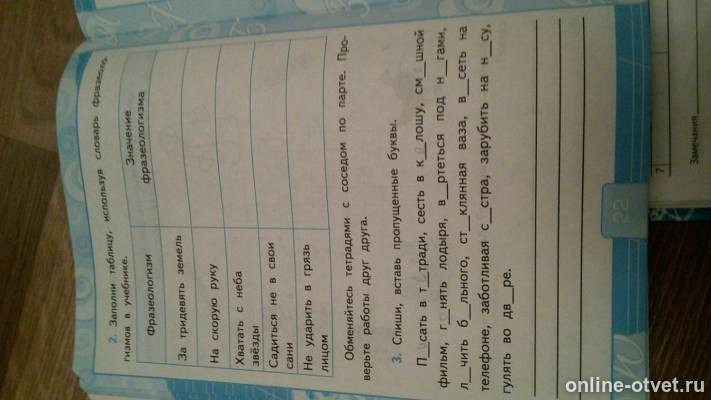 2. Заполни таблицу, используя словарь фразеоло-
гизмов в учебнике.
Фразеологизм
Значение
фразеологизма
За тридевять земель
На скорую руку
Хватать с неба
звёзды
Садиться не в свои
сани
Не ударить в грязь
лицом
Обменяйтесь тетрадями с соседом по парте. Про-
верьте работы друг друга.
3. Спиши, вставь пропущенные буквы.
П__сать в т__тради, сесть в к__лошу, см__шной
фильм, г__нять лодыря, в__ртеться под н__гами,
л__чить б__льного, ст__клянная ваза, в__сеть на
телефоне, заботливая с__стра, зарубить на н__су,
гулять во дв__ре.
22
7
Замечания
online-otvet.ru